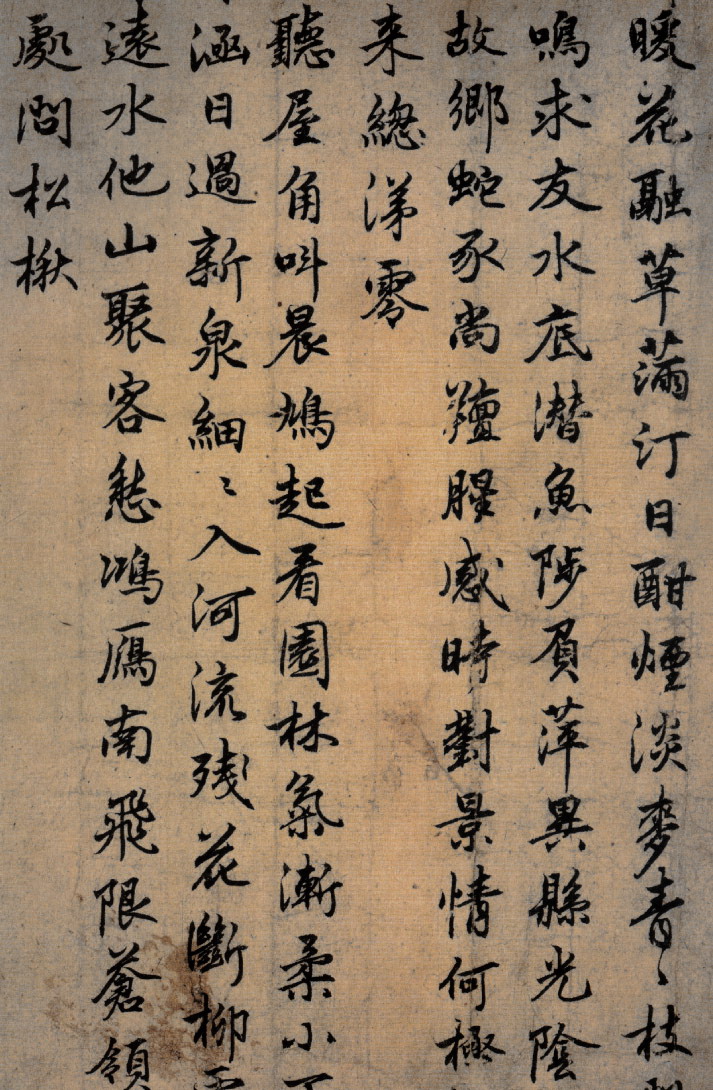 暖花融草滿汀日酣煙淡麥青〻枝
鳴求友水底潛魚陟負萍異縣光陰
故鄉蛇豕尚羶腥感時對景情何極
来總涕零
聽屋角叫晨鳩起看園林氣漸柔小
涵日過新泉細〻入河流殘花斷柳
遠水他山聚客愁鴻雁南飛限蒼領
處問松楸